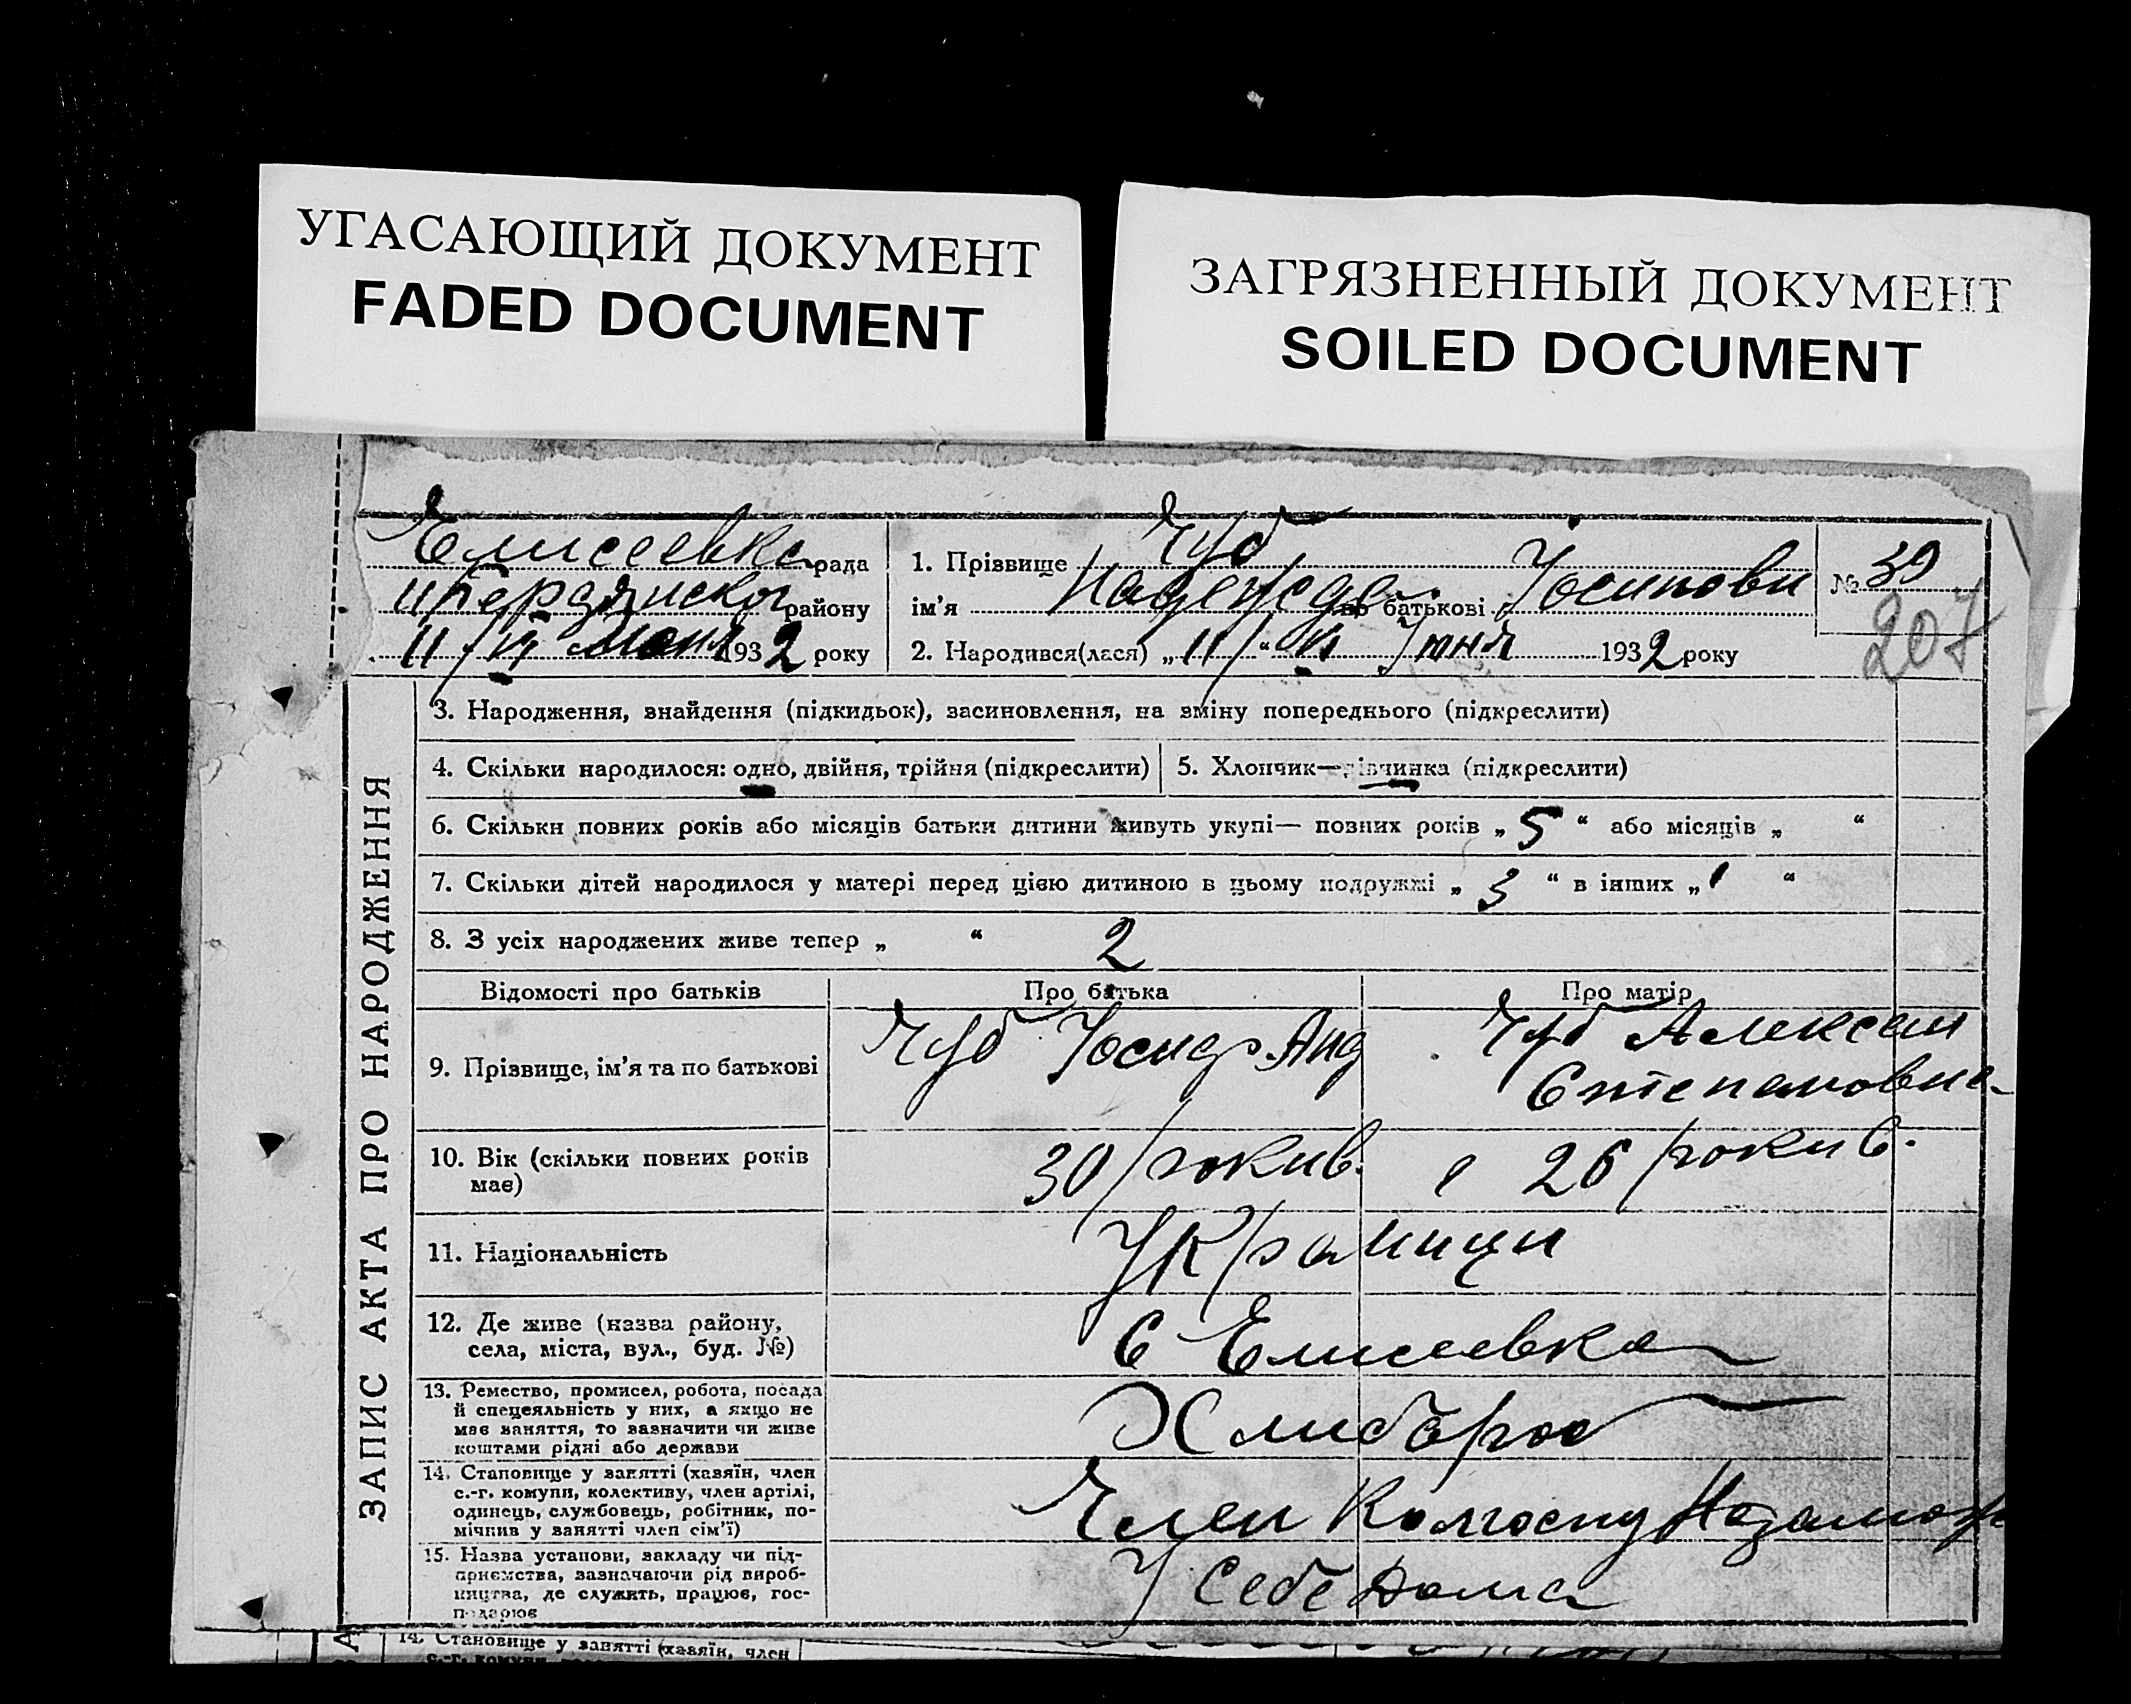 УГАСАЮЩИЙ ДОКУМЕНТ
FADED DOCUMENT
ЗАГРЯЗНЕННЫЙ ДОКУМЕНТ
SOILED DOCUMENT
Елисеевка рада
района
11/VI 1932 року
1. Прізвище Чуб
ім'я Надежда по батькові Іосиповн
2. Народився(лася) „11/“ VI Июня 1932 року
№ 39
207
ЗАПИС АКТА ПРО НАРОДЖЕННЯ
3. Народження, знайдення (підкидьок), засиновлення, на зміну попереднього (підкреслити)
4. Скільки народилося: одно, двійня, трійня (підкреслити)
5. Хлопчик—дівчинка (підкреслити)
6. Скільки повних років або місяців батьки дитини живуть укупі— повних років „ 5 “ або місяців „ “
7. Скільки дітей народилося у матері перед цією дитиною в цьому подружжі „ 3 “ в інших „ “
8. З усіх народжених живе тепер „ “ 2
Відомості про батьків Про батька Про матір
9. Прізвище, ім'я та по батькові
Чуб Іосиф Анд
Чуб Алексан
Степановна
10. Вік (скільки повних років
має)
30/рокив. 26/рокив.
11. Національність
Украинци
12. Де живе (назва району,
села, міста, вул., буд. №)
С Елисеевка
13. Ремество, промисел, робота, посада
й спецеяльність у них, а якщо не
має заняття, то зазначити чи живе
коштами рідні або держави
Хлибороб
14. Становище у занятті (хазяїн, член
с.-г. комуни, колективу, член артілі,
одинець, службовець, робітник, по-
мічник у занятті член сім'ї)
Член Колгоспу Незамож
15. Назва установи, закладу чи під-
приємства, зазначаючи рід вироб-
ництва, де служить, працює, гос-
подарює
У Себе Дома
14. Становище у занятті (хазяїн, член
с.-г. комуни